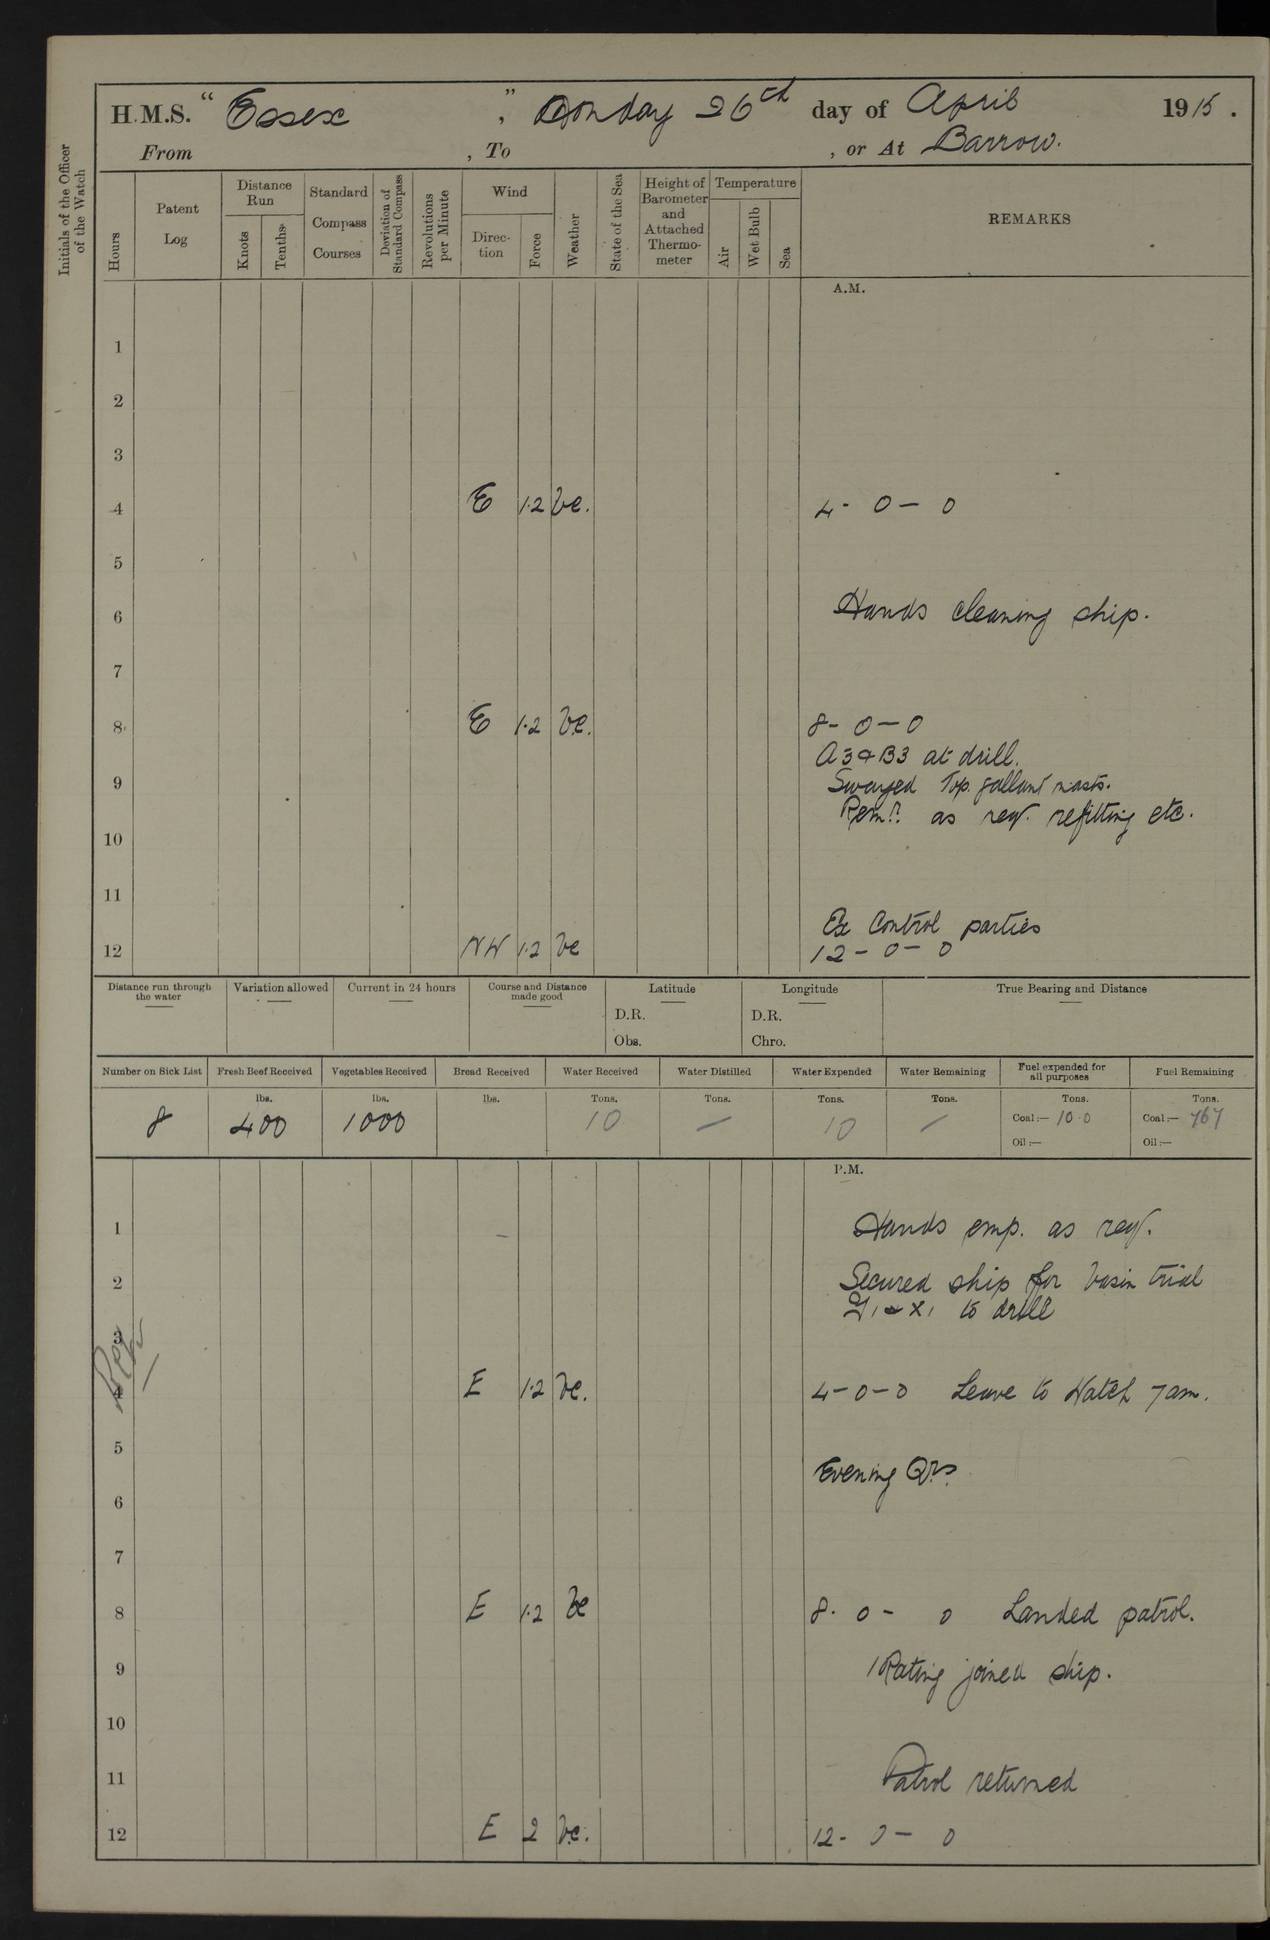 H.M.S. " Essex ", Monday 26th day of April 1915.
From , To , or At Barrow.
Initials of the Officer of the Watch
Hours
Patent Log
Distance Run
Knots
Tenths
Standard Compass Courses
Deviation of Standard Compass
Revolutions per Minute
Wind
Direction
Force
Weather
State of the Sea
Height of Barometer and Attached Thermometer
Temperature
Air
Wet Bulb
Sea
REMARKS
A.M.
1
2
3
4 E 1.2 bc. 4 - 0 - 0
5
6 Hands cleaning ship.
7
8 E 1.2 b.c. 8 - 0 - 0
A3 & B3 at drill.
9 Swayed Top gallant masts.
Remr. as req. refitting etc.
10
11
Ex Control parties
12 NW 1.2 bc 12 - 0 - 0
Distance run through the water
Variation allowed
Current in 24 hours
Course and Distance made good
Latitude
D.R.
Obs.
Longitude
D.R.
Chro.
True Bearing and Distance
Number on Sick List
Fresh Beef Received
Vegetables Received
Bread Received
Water Received
Water Distilled
Water Expended
Water Remaining
Fuel expended for all purposes
Fuel Remaining
lbs. lbs. lbs. Tons. Tons. Tons. Tons. Tons. Tons.
8 400 1000 10 — 10 — Coal:— 10.0 Coal:— 767
Oil:— Oil:—
P.M.
1 Hands emp. as req.
2 Secured ship for basin trial
& X1 to drill
3
4 E 1.2 bc. 4 - 0 - 0 Leave to Watch 7 am.
5
Evening Qrs.
6
7
8 E 1.2 bc 8 - 0 - 0 Landed patrol.
9 1 Rating joined ship.
10
11 Patrol returned
12 E 2 b.c. 12 - 0 - 0